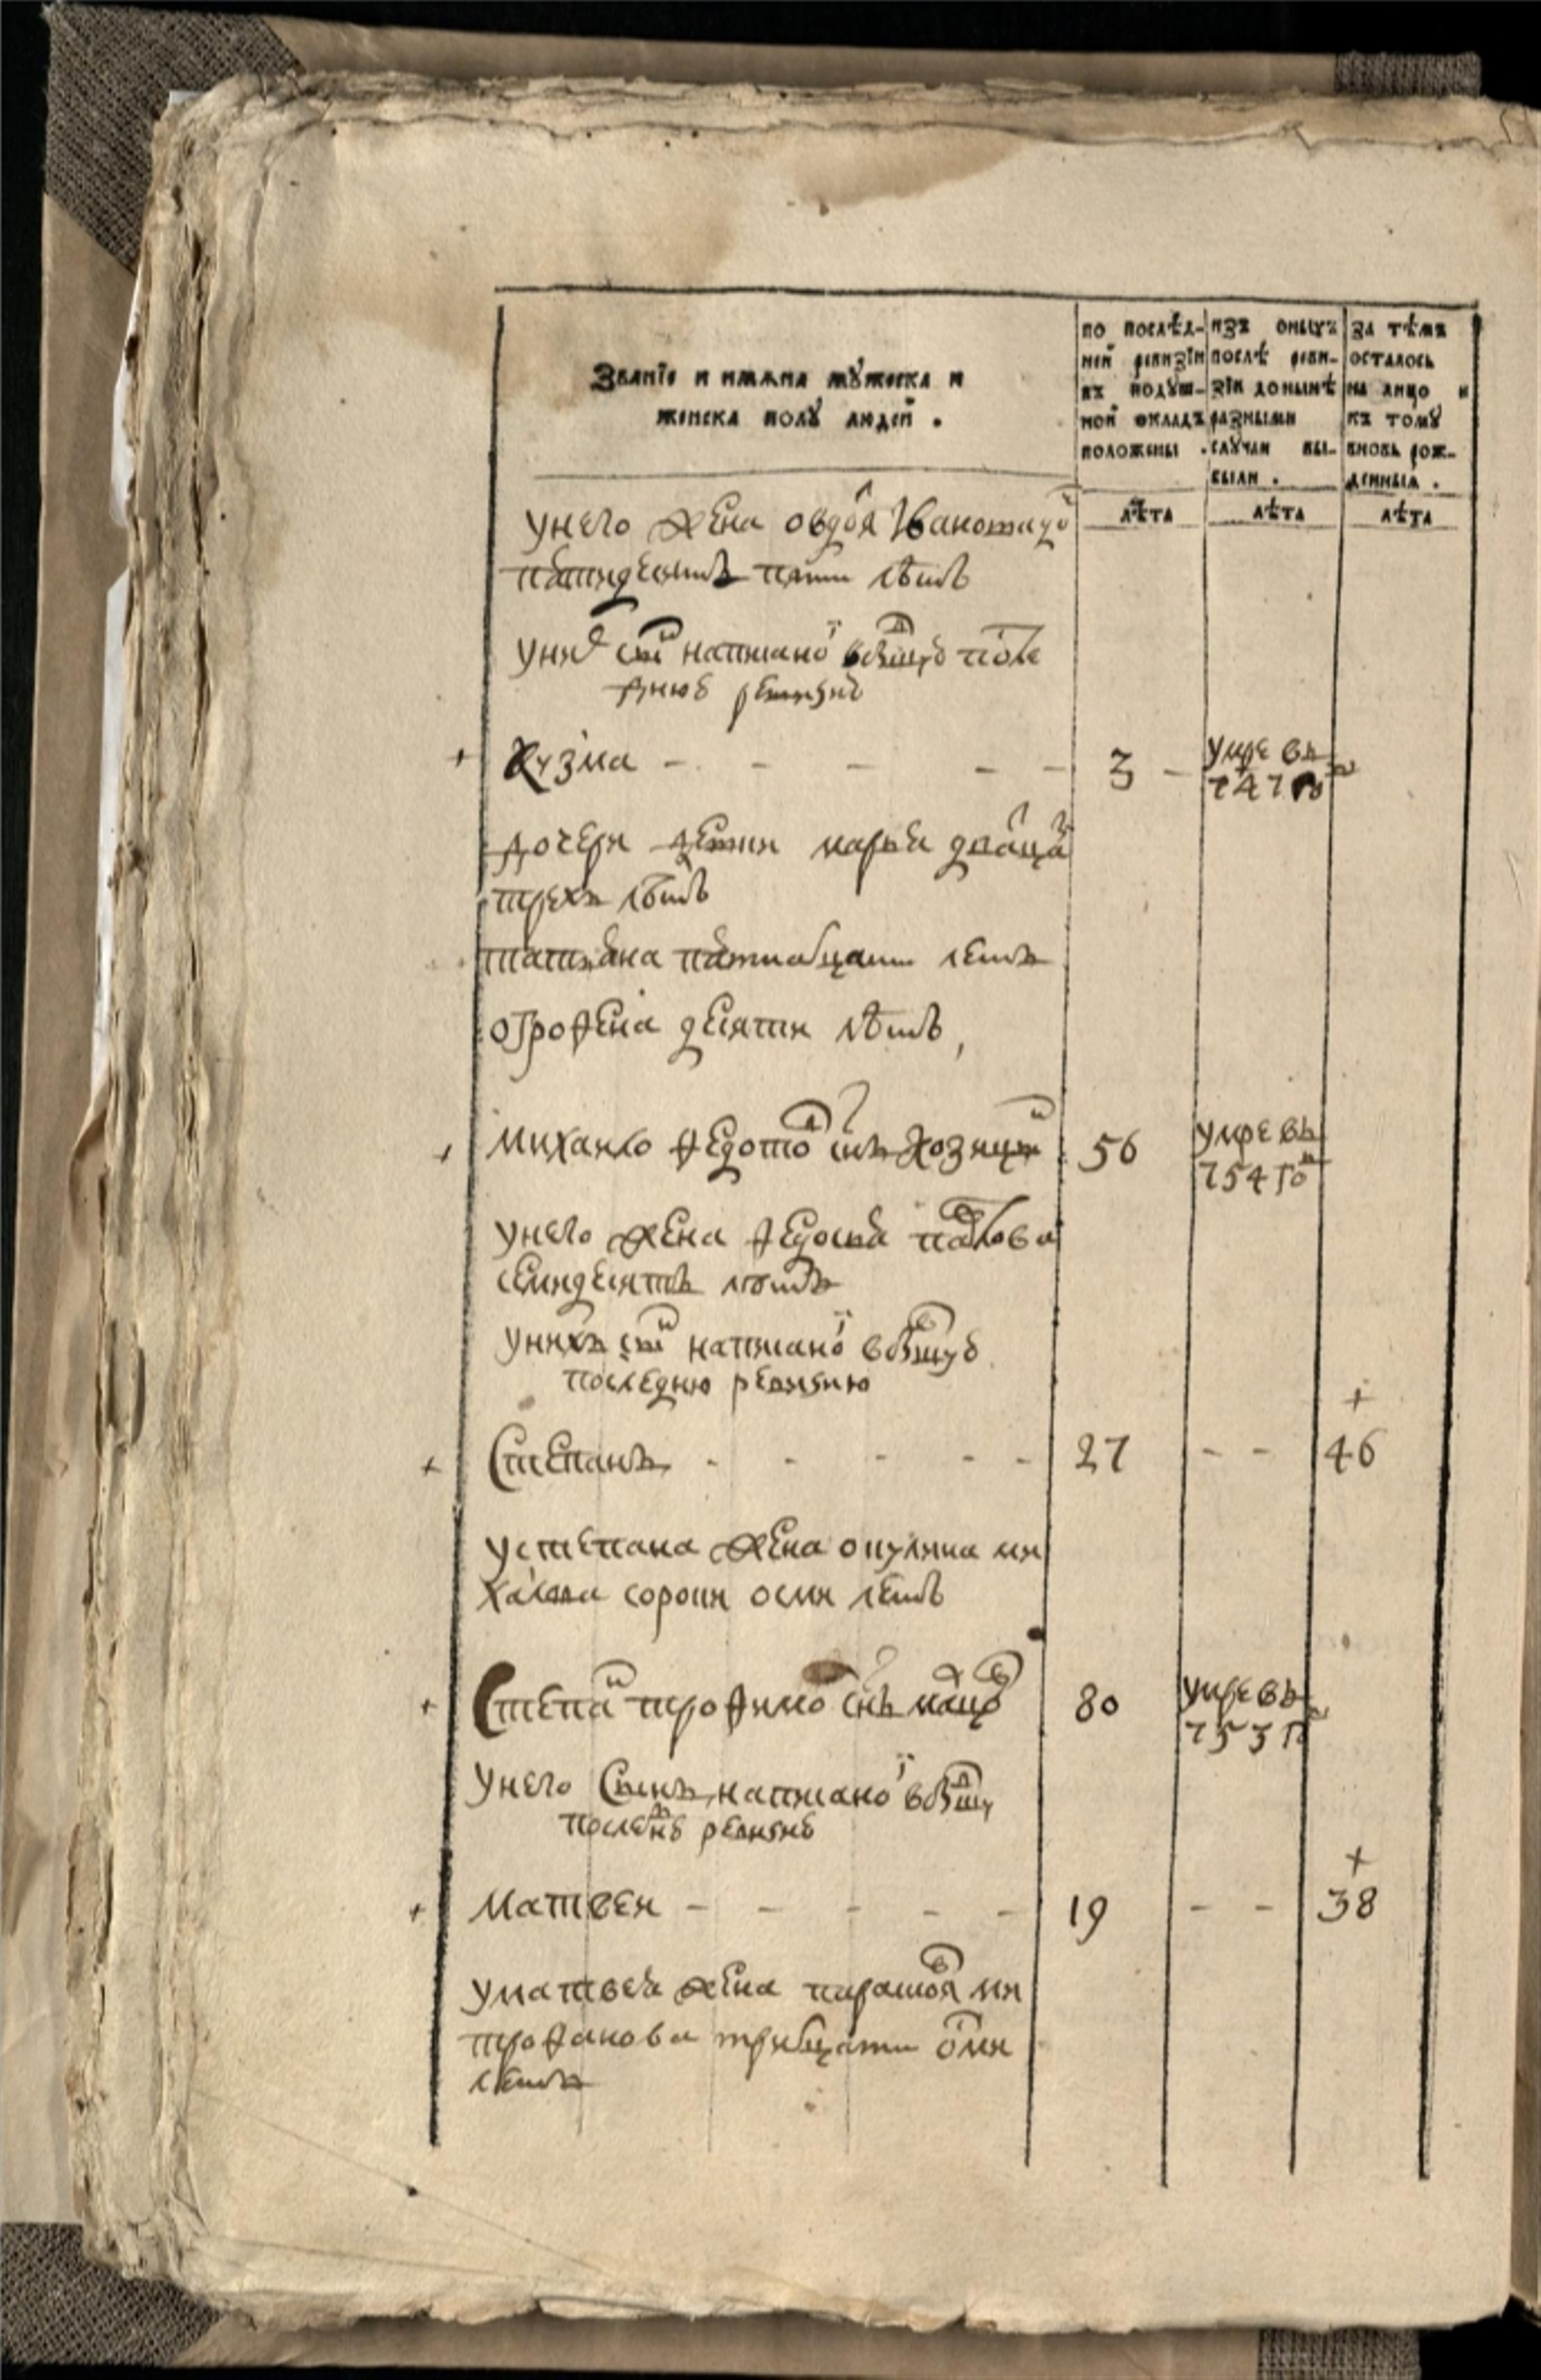 Званїе и имѧна мꙋжеска и
женска полꙋ людей .
по послѣд-
ней ревизїи
въ подꙋш-
ной окладъ
положены .
изъ оныхъ
послѣ реви-
зїи донынѣ
разными
слꙋчаи вы-
были .
за тѣмъ
осталось
на лицо и
къ томꙋ
вновь рож-
денныѧ .
лѣта
лѣта
лѣта
у него жена овдоя Иванова
пятидесятъ пяти лѣтъ
у них сн написаной в бывшую после
днюю ревизию
+ Кузма - - - - - 3 - умре въ
747 го
дочери дети марья дватца
трехъ лѣтъ
татьяна пятнатцати летъ
офрофена десяти лѣтъ,
+ Михаило федотов снъ 56 умре въ
754 го
у него жена федосья павлова
семидесятъ летъ
у нихъ сн написаной в бывшую
последнюю ревизию
+
+ Степанъ - - - - - 27 - - 46
у степана жена окулина ми
хаилова сорокъ осми летъ
+ Степан трофимов снъ 80 умре въ
753 го
у него сынъ написаной в бывшу
последню ревизию
+
+ Матвеи - - - - - 19 - - 38
у матвея жена парасковя ми
трофанова тритцати осми
летъ